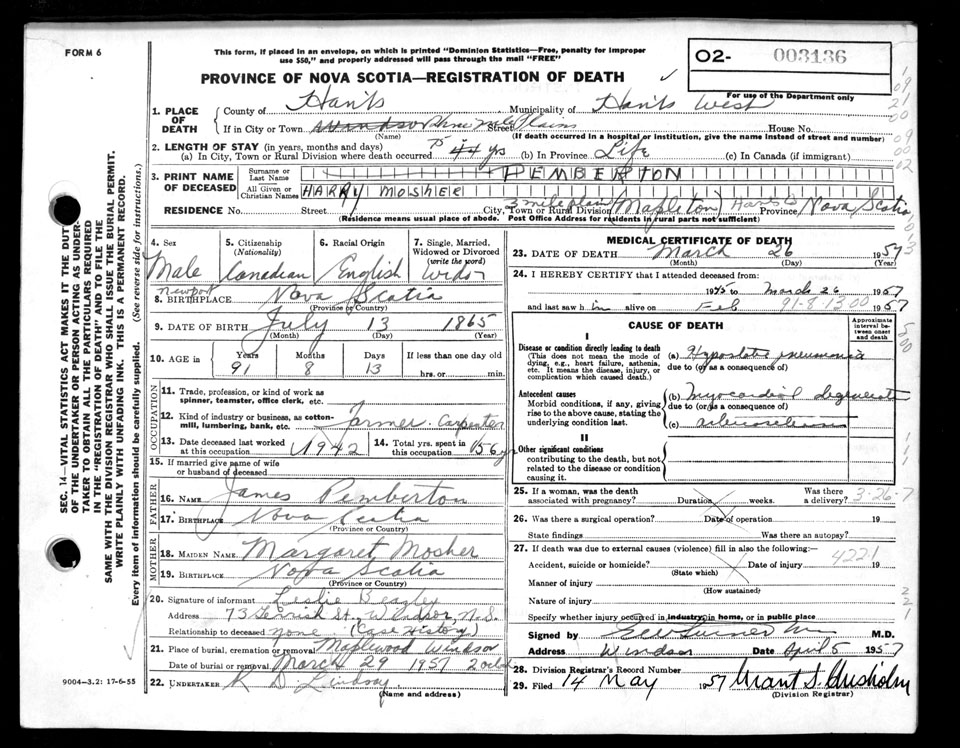 FORM 6
This form, if placed in an envelope, on which is printed "Dominion Statistics—Free, penalty for improper
use $50," and properly addressed will pass through the mail "FREE"
PROVINCE OF NOVA SCOTIA—REGISTRATION OF DEATH
02- 003136
For use of the Department only
1. PLACE OF DEATH
County of Hants Municipality of Hants West
If in City or Town Windsor Three mile Plains Street House No.
(Name) (If death occurred in a hospital or institution, give the name instead of street and number)
2. LENGTH OF STAY (in years, months and days)
(a) In City, Town or Rural Division where death occurred 75 44 yrs (b) In Province Life (c) In Canada (if immigrant)
3. PRINT NAME OF DECEASED
Surname or Last Name PEMBERTON
All Given or Christian Names HARRY MOSHER
RESIDENCE No. Street City, Town or Rural Division 3 mile plains (Mapleton) Hants Co Province Nova Scotia
(Residence means usual place of abode. Post Office Address for residents in rural parts not sufficient)
4. Sex
Male
5. Citizenship (Nationality)
Canadian
6. Racial Origin
English
7. Single, Married, Widowed or Divorced (write the word)
Wid
8. BIRTHPLACE Newport Nova Scotia
(Province or Country)
9. DATE OF BIRTH July 13 1865
(Month) (Day) (Year)
10. AGE in Years Months Days If less than one day old
91 8 13 hrs. or min.
OCCUPATION
11. Trade, profession, or kind of work as
spinner, teamster, office clerk, etc.
12. Kind of industry or business, as cotton-
mill, lumbering, bank, etc. Farmer - Carpenter
13. Date deceased last worked at this occupation 1942
14. Total yrs. spent in this occupation 56 yr
15. If married give name of wife
or husband of deceased
FATHER
16. NAME James Pemberton
17. BIRTHPLACE Nova Scotia
(Province or Country)
MOTHER
18. MAIDEN NAME Margaret Mosher
19. BIRTHPLACE Nova Scotia
(Province or Country)
20. Signature of informant Leslie Beazley
Address 73 St., Windsor, N.S.
Relationship to deceased none (Case History)
21. Place of burial, cremation or removal Maplewood Windsor
Date of burial or removal March 29 1957
22. UNDERTAKER R D. Lindsay
(Name and address)
9004—3.2: 17-6-55
MEDICAL CERTIFICATE OF DEATH
23. DATE OF DEATH March 26 1957
(Month) (Day) (Year)
24. I HEREBY CERTIFY that I attended deceased from:
1945 to March 26 1957
and last saw h im alive on Feb 91-8-1300 1957
CAUSE OF DEATH
Approximate interval between onset and death
I
Disease or condition directly leading to death
(This does not mean the mode of dying, e.g., heart failure, asthenia, etc. It means the disease, injury, or complication which caused death.)
(a) Hypostatic pneumonia
due to (or as a consequence of)
Antecedent causes
Morbid conditions, if any, giving rise to the above cause, stating the underlying condition last.
(b) Myocardial degenerat
due to (or as a consequence of)
(c)
II
Other significant conditions
contributing to the death, but not related to the disease or condition causing it.
25. If a woman, was the death associated with pregnancy? Duration weeks. Was there a delivery? 3-26-7
26. Was there a surgical operation? Date of operation 19
State findings Was there an autopsy?
27. If death was due to external causes (violence) fill in also the following:—
Accident, suicide or homicide? Date of injury 4221 19
(State which)
Manner of injury
(How sustained)
Nature of injury
Specify whether injury occurred in industry, in home, or in public place
Signed by M.D.
Address Windsor Date April 5 1957
28. Division Registrar's Record Number
29. Filed 14 May 1957 Grant S. Chisholm
(Division Registrar)
SEC. 14—VITAL STATISTICS ACT MAKES IT THE DUTY
OF THE UNDERTAKER OR PERSON ACTING AS UNDER-
TAKER TO OBTAIN ALL THE PARTICULARS REQUIRED
IN THE "REGISTRATION OF DEATH" AND TO FILE THE
SAME WITH THE DIVISION REGISTRAR WHO SHALL ISSUE THE BURIAL PERMIT.
WRITE PLAINLY WITH UNFADING INK. THIS IS A PERMANENT RECORD.
Every item of information should be carefully supplied. (See reverse side for instructions.)